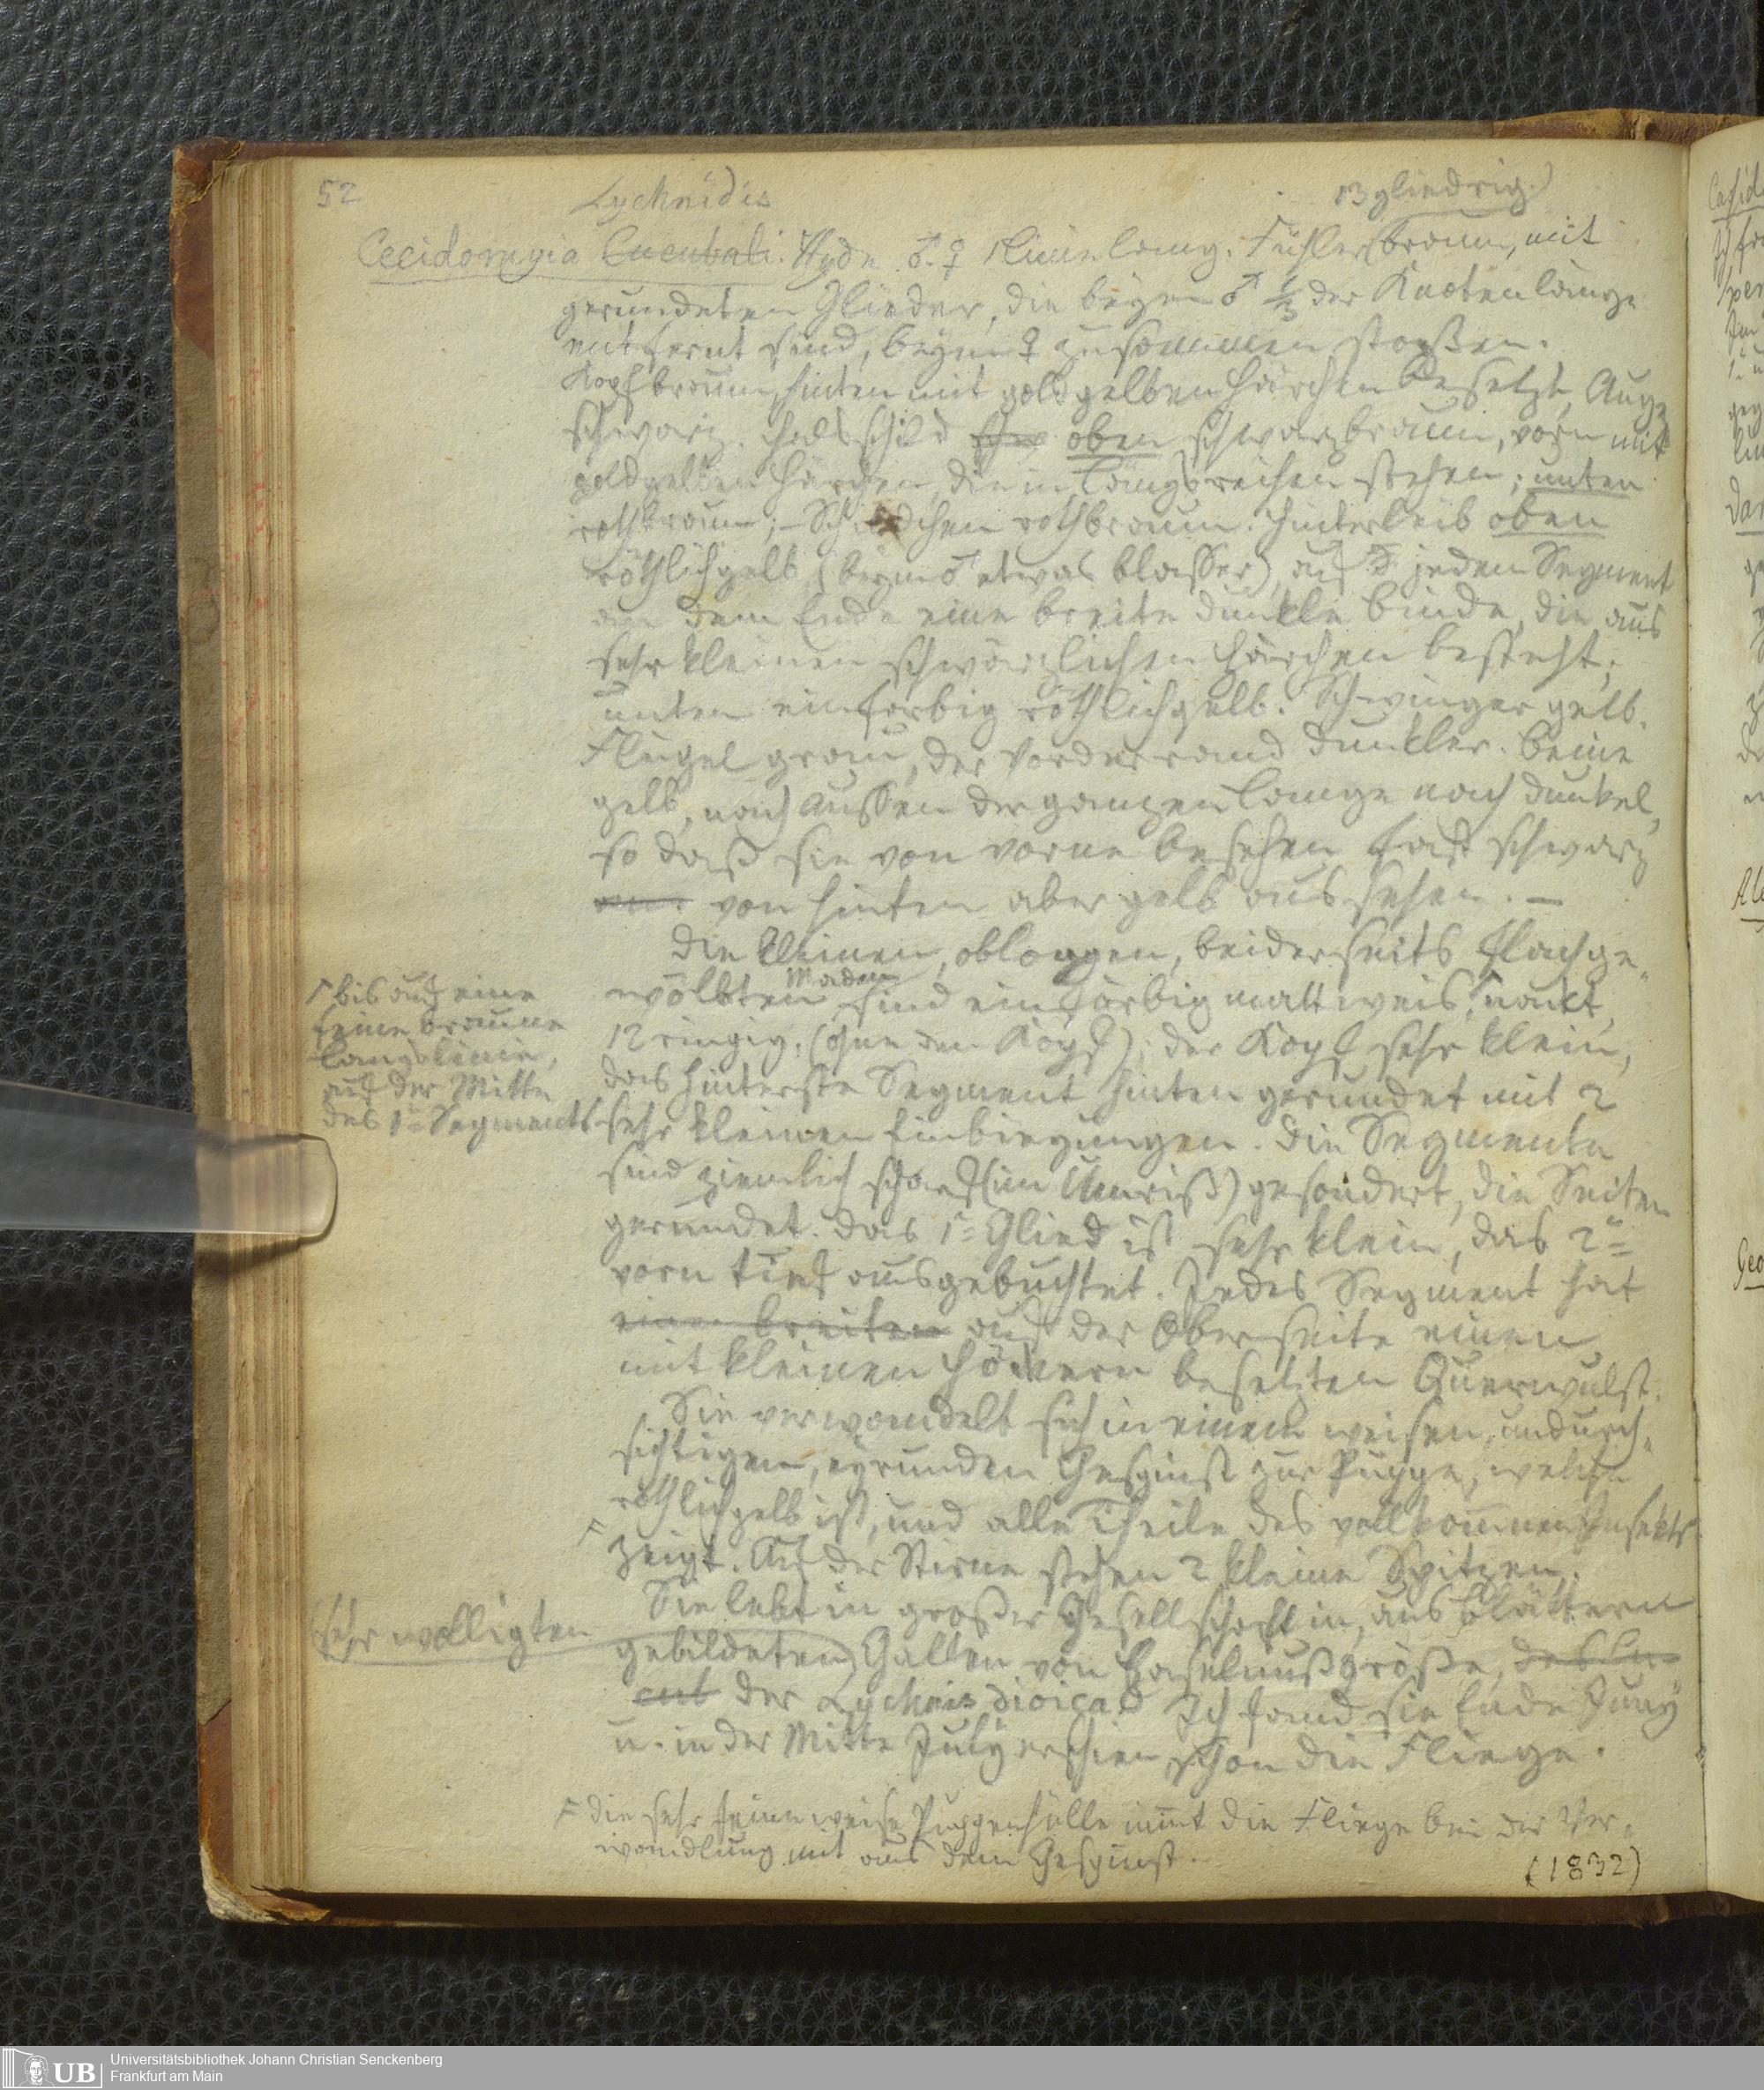 52
Lychnidis
13gliedrig.)
Cecidomyia Cucubali. Hyde. ♂. ♀ 1 Linie lang. Fühler (braun, mit
gerundeten Glieder, die beym ♂ 1/3 der Knotenlänge
entfernt sind, beym ♀ zusammen stoßen.
Kopf braun, hinten mit goldgelben Härchen besetzt, Auge
schwarz. Halsschild schw oben schwarzbraun, vorn mit
goldgelben Härchen, die in Längsreihen stehen; unten
rothbraun; – Schildchen rothbraun. Hinterleib oben
röthlichgelb (beym ♂ etwas blasser), auf jedem Segment
an dem Ende eine breite dunkle Binde, die aus
sehr kleinen schwärzlichen Härchen besteht;
unten einfarbig röthlichgelb. Schwinger gelb.
Flügel grau, der Vorderrand dunkler. Beine
gelb, nach aussen der ganzen Länge nach dunkel,
so daß sie von vorne besehen fast schwarz
von hinten aber gelb aussehen. –
Die kleinen, oblongen, beiderseits flachge-
wölbten Maden sind einfärbig mattweis, Γ nackt,
12 ringig, (ohne den Kopf); der Kopf sehr klein,
das hinterste Segment hinten gerundet mit 2
sehr kleinen Einbiegungen. Die Segmente
sind ziemlich scharf (im Umriß) gesondert, die Seiten
gerundet. Das 1te Glied ist sehr klein, das 2te
vorn tief ausgebuchtet. Jedes Segment hat
einen breiten auf der Oberseite einen
mit kleinen Höckern besetzten Querwulst.
Γ bis auf eine
feine braune
Längslinie,
auf der Mitte
des 1ten Segments
Sie verwandelt sich in einem weisen, undurch-
sichtigen, eyrunden Gespinst zur Puppe, welche
röthlichgelb ist, und alle Theile des vollkommnen Insekts
F zeigt. Auf der Stirne stehen 2 kleine Spitzen.
Sie lebt in großer Gesellschaft in, aus Blättern
sehr wolligten
gebildeten, Gallen von Haselnußgröße, des Cu-
cub der Lychnis dioica. Ich fand sie Ende Juny
u. in der Mitte July erschien schon die Fliege.
F die sehr feine weise Puppenhülle nimt die Fliege bei der Ver-
wandlung mit aus dem Gespinst.
(1832)
Universitätsbibliothek Johann Christian Senckenberg
Frankfurt am Main
UB